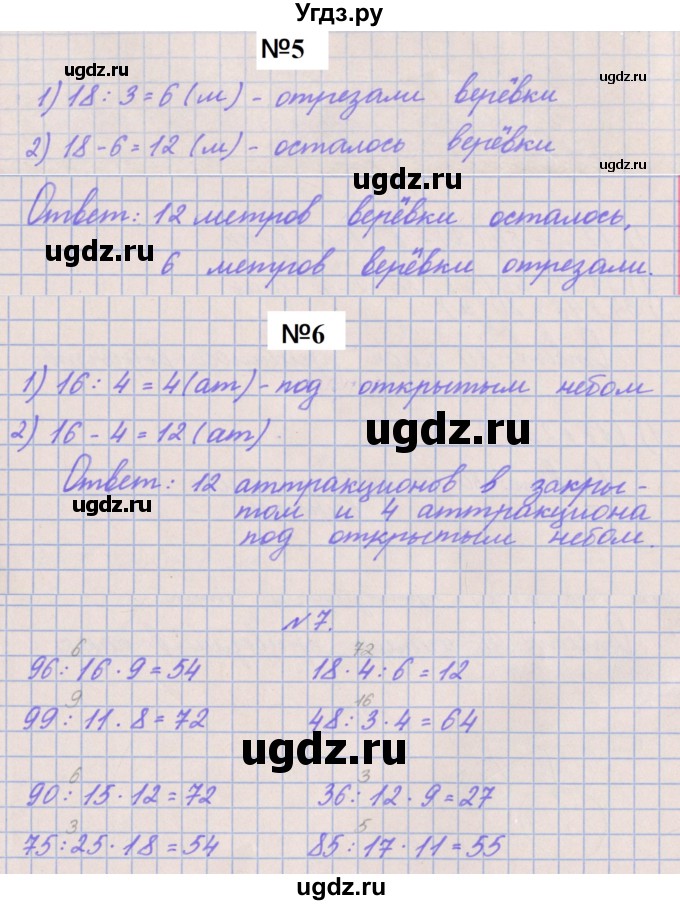 Угдз.ру
№5
ugdz.ru
1) 18 : 3 = 6 (м) - отрезали верёвки
ugdz.ru
2) 18 - 6 = 12 (м) - осталось верёвки
ugdz.ru
Ответ: 12 метров верёвки осталось,
ugdz.ru
6 метров верёвки отрезали.
№6
1) 16 : 4 = 4 (ат) - под открытым небом
2) 16 - 4 = 12 (ат)
ugdz.ru
Ответ: 12 аттракционов в закры-
ugdz.ru
том и 4 аттракциона
под открытым небом.
№7.
6 72
96 : 16 · 9 = 54 18 · 4 : 6 = 12
9 16
99 : 11 · 8 = 72 48 : 3 · 4 = 64
ugdz.ru
6 3
90 : 15 · 12 = 72 36 : 12 · 9 = 27
3 5
75 : 25 · 18 = 54 85 : 17 · 11 = 55
ugdz.ru